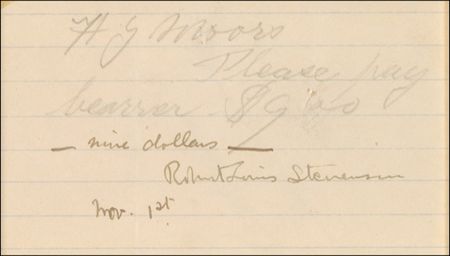 H J Moors
Please pay
bearrer $9.00
— nine dollars —
Robert Louis Stevenson
Nov. 1st